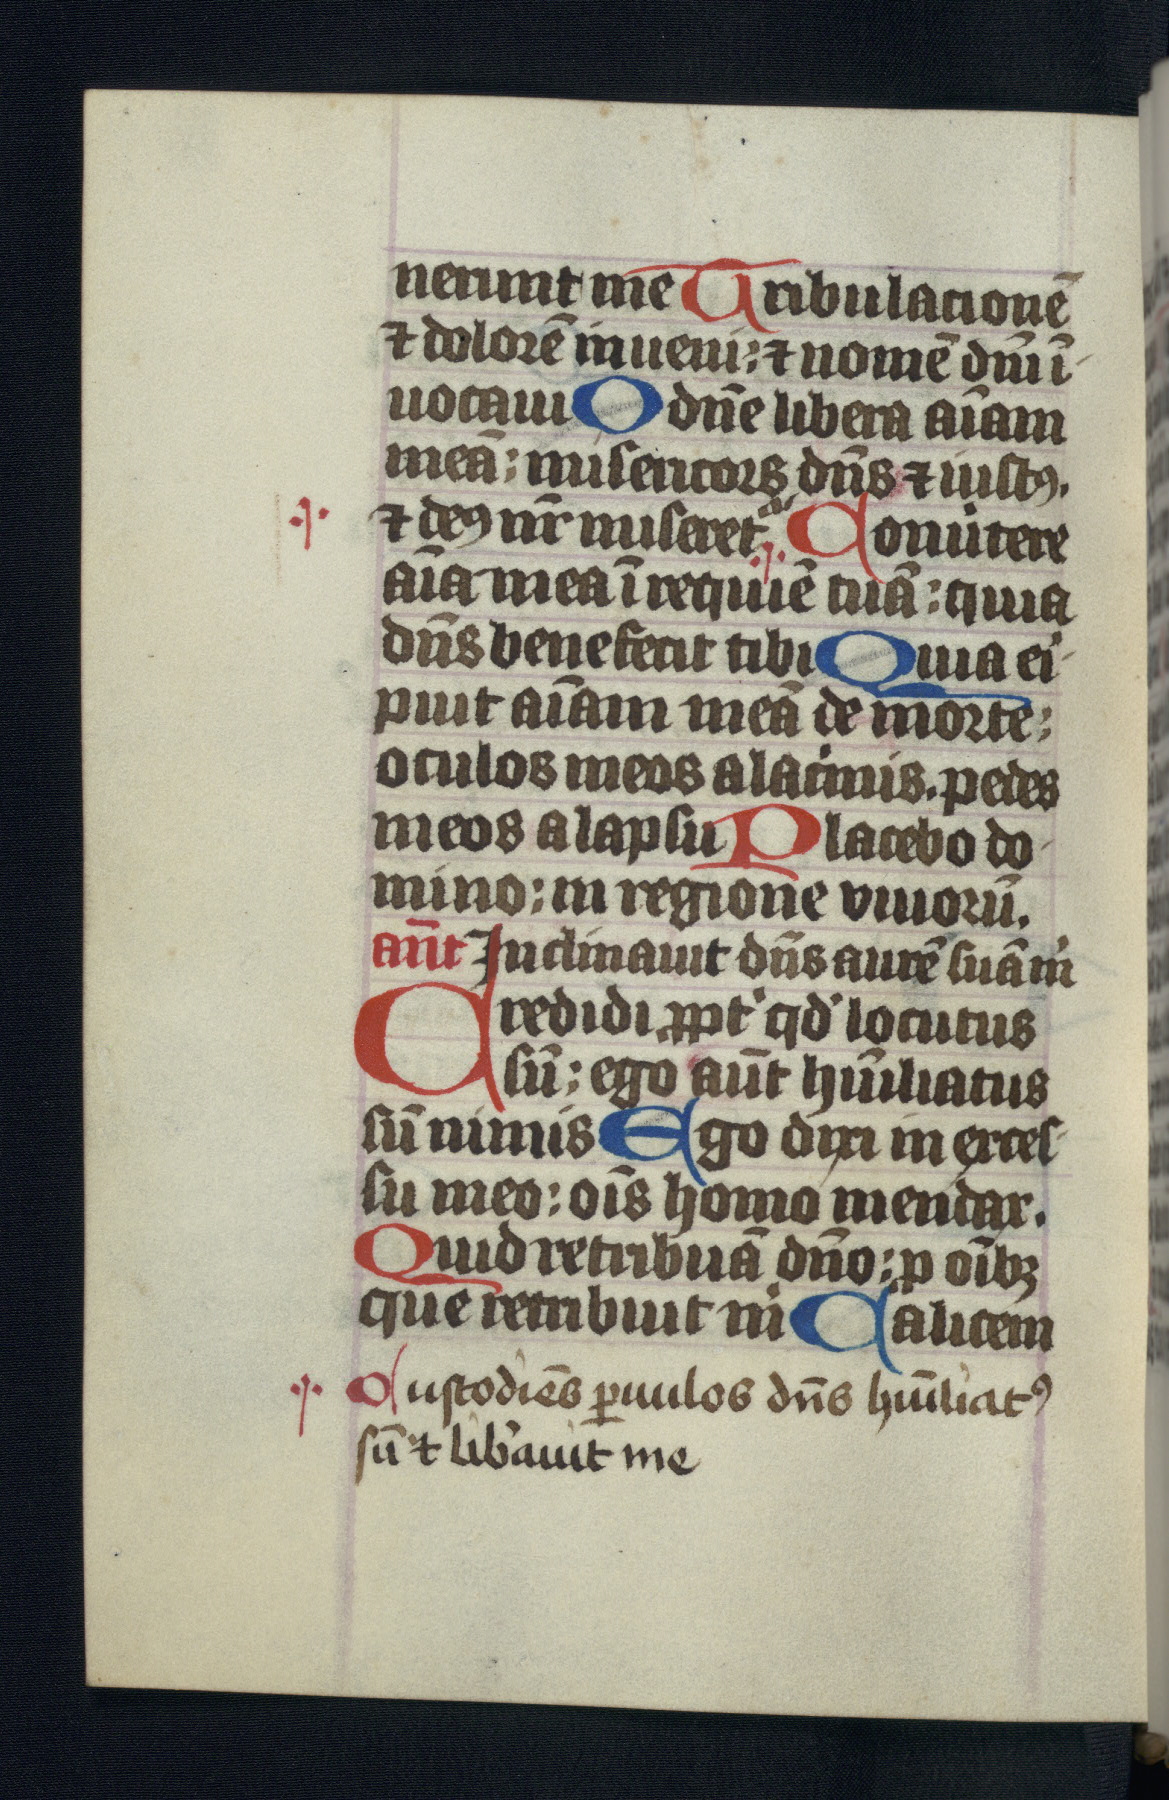 nerunt me Tribulacionē
⁊ dolorē inueni: ⁊ nomē dn̄i ī
uocaui O dn̄e libera aīam
meā: misericors dn̄s ⁊ iustꝰ.
⁊ deꝰ nr̄ miseret᷑ Conuͥtere
aīa mea ī requiē tuā: quia
dn̄s benefecit tibi Quia ei
puit aīam meā de morte:
oculos meos a lacͥmis. pedes
meos a lapsu Placebo do
mino: in regione viuorū.
an̄t Inclinauit dn̄s aurē suā mͥ
Credidi ꝓpt᷑ qd᷑ locutus
sū: ego aūt hūiliatus
sū nimis Ego dixi in exces
su meo: oīs homo mendax.
Quid retribuā dn̄o: p oībꝫ
que retribuit mͥ Calicem
Custodiēs ꝑuulos dn̄s hūiliatꝰ
sū ⁊ lib᷑auit me